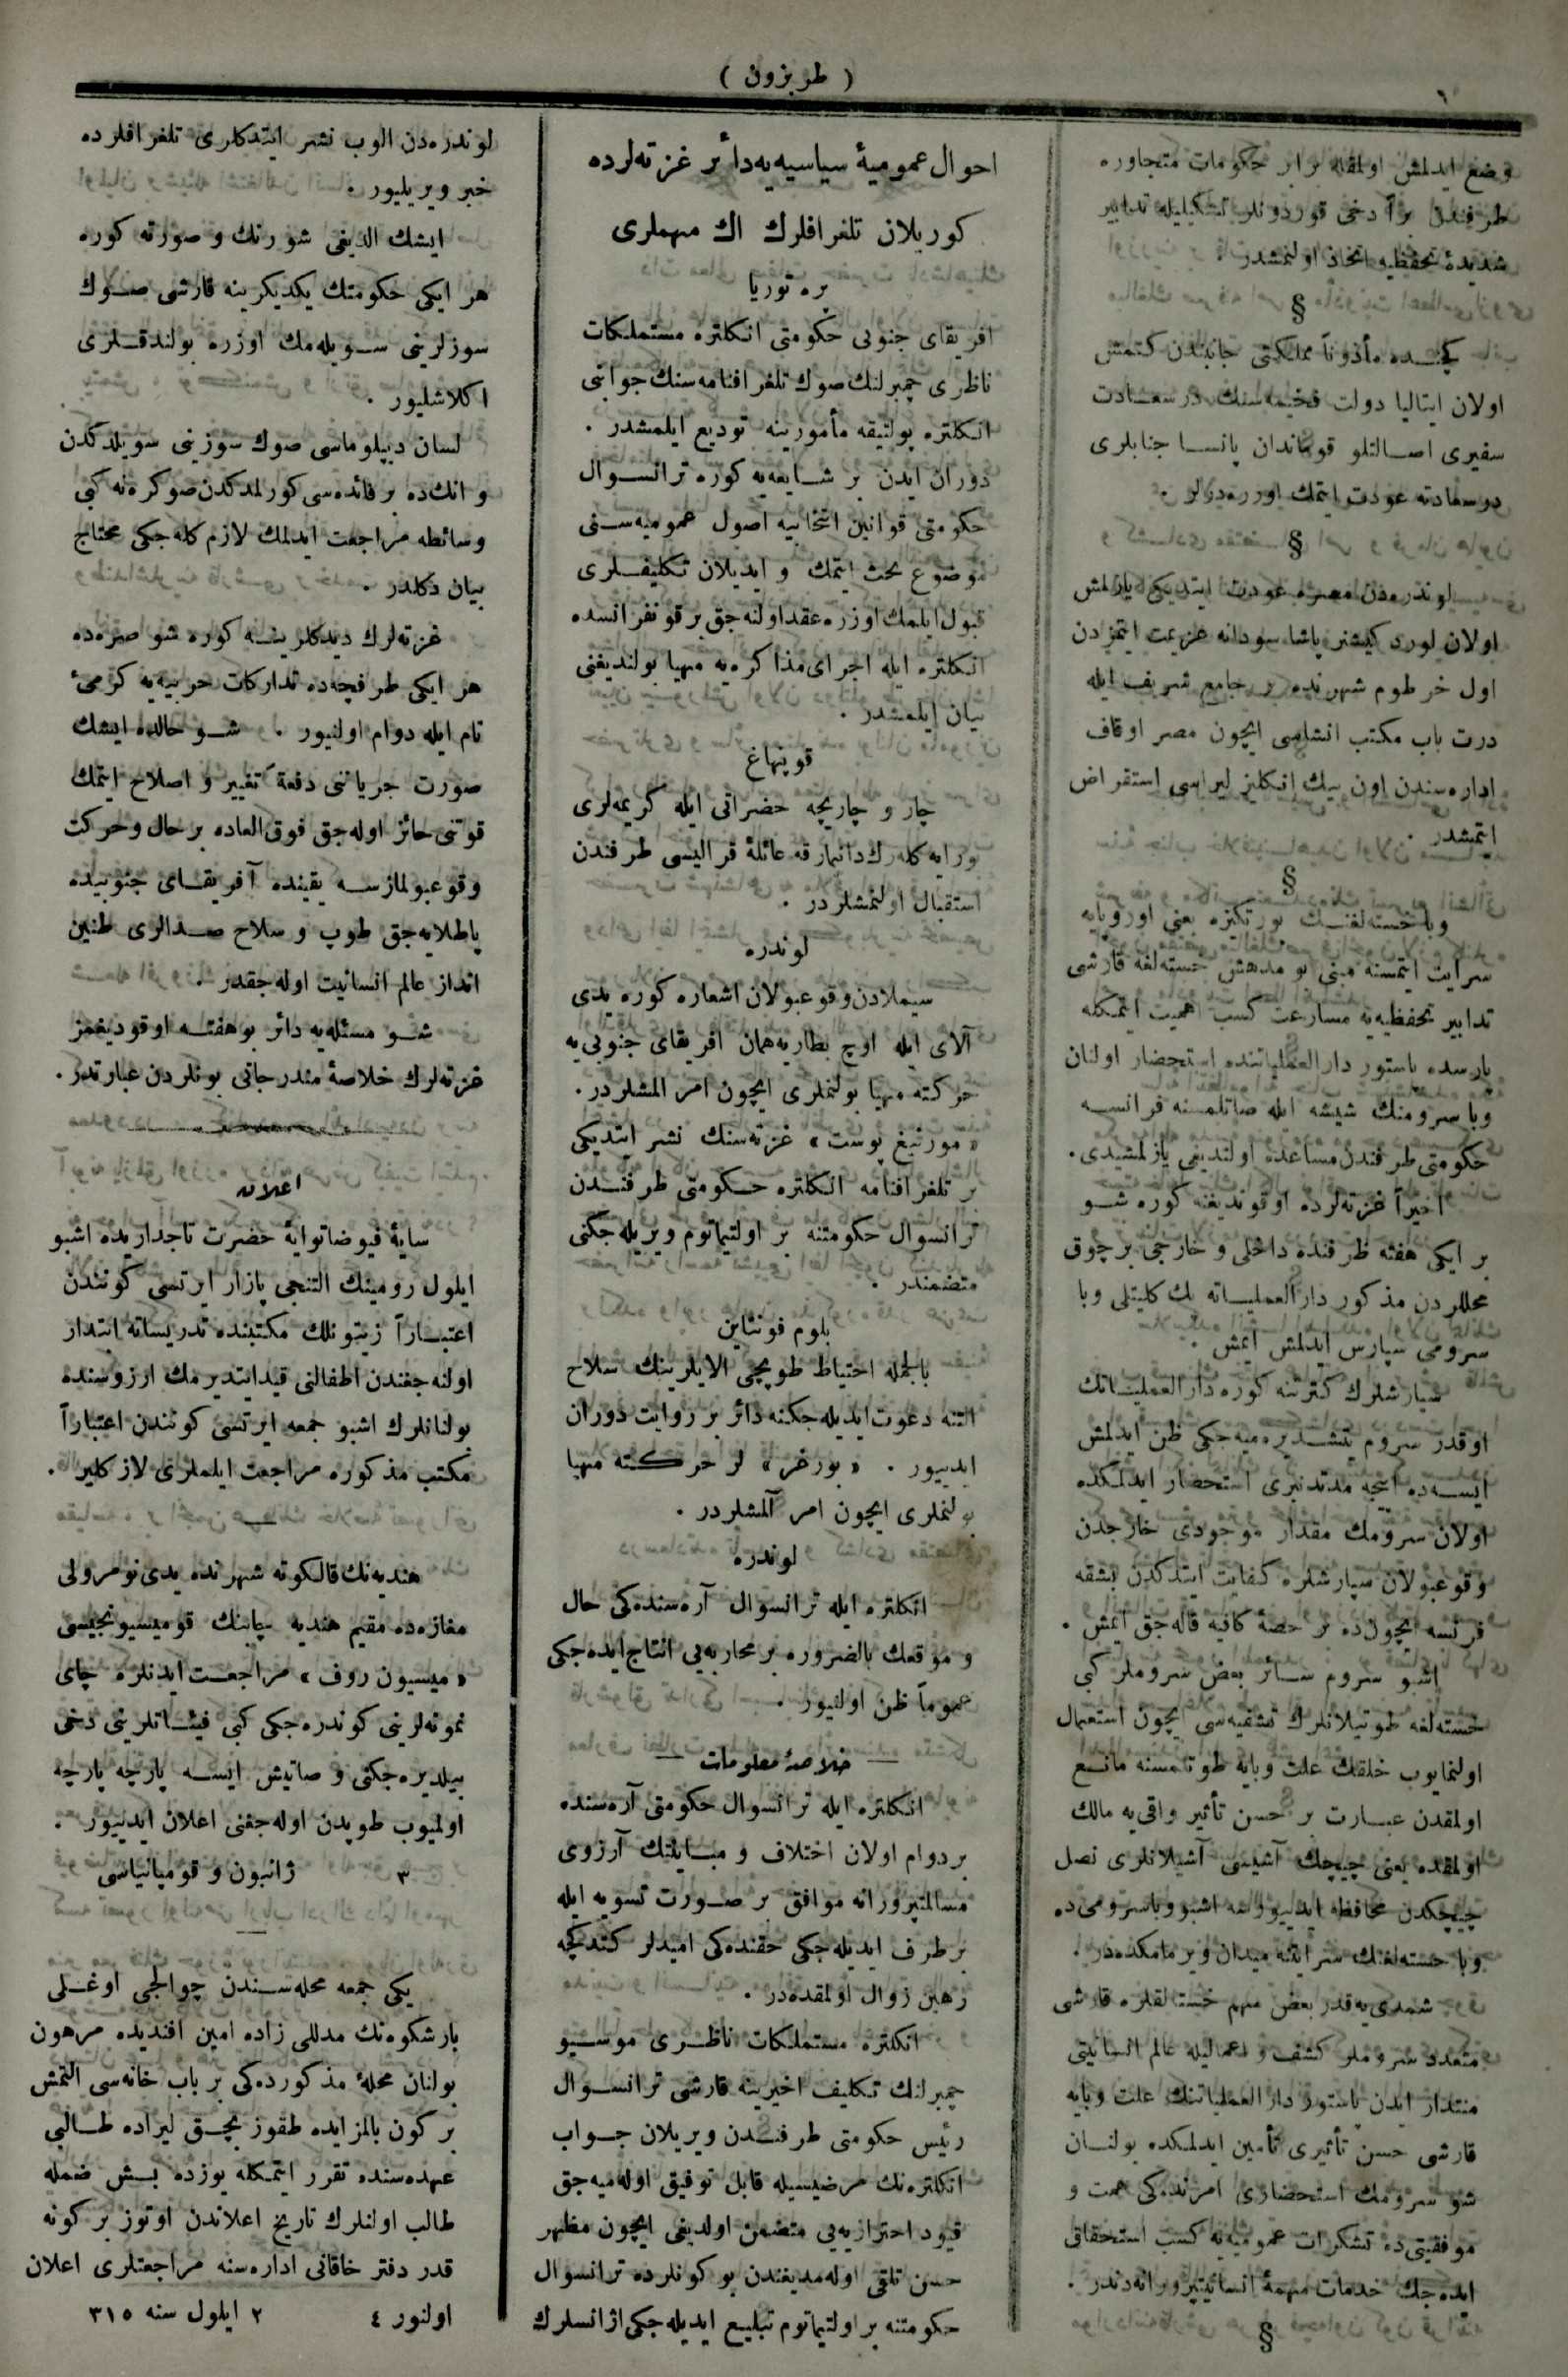 ( طربزون )
٦
وضع ايدلمش اولمقله برابر حكومات متجاوره
طرفندن براً دخى قوردونلر تشكيليله تدابير
شديدهٔ تحفظيه اتخاذ اولنمشدر .
§
كچنده مأذوناً مملكتى جانبندن كتمش
اولان ايتاليا دولت فخيمه‌سنك درسعادت
سفيرى اصالتلو قوماندان پانسا جنابلرى
درسعادته عودت ايتمك اوزره‌درلر .
§
لوندره‌دن مصره عودت ايتديكى يازلمش
اولان لورد كيشنر پاشا سودانه عزيمت ايتمزدن
اول خرطوم شهرنده بر جامع شريف ايله
درت باب مكتب انشاسى ايچون مصر اوقاف
اداره‌سندن اون بيك انكليز ليراسى استقراض
ايتمشدر .
§
وبا خسته‌لغنك پورتكزه يعنى اوروپايه
سرايت ايتمسنه مبنى بو مدهش خسته‌لغه قارشى
تدابير تحفظيه‌يه مسارعت كسب اهميت ايتمكله
پارسده پاستور دارالعملياتنده استحضار اولنان
وبا سرومنك شيشه ايله صاتلمسنه فرانسه
حكومتى طرفندن مساعده اولنديغى يازلمشيدى .
اخيراً غزته‌لرده اوقونديغنه كوره شو
بر ايكى هفته ظرفنده داخلى و خارجى بر چوق
محللردن مذكور دارالعملياته پك كليتلى وبا
سرومى سپارش ايدلمش ايمش .
سپارشلرك كثرتنه كوره دارالعملياتك
اوقدر سروم يتشديره‌ميه‌جكى ظن ايدلمش
ايسه‌ده ايجه مدتدنبرى استحضار ايدلمكده
اولان سرومك مقدار موجودى خارجدن
وقوعبولان سپارشلره كفايت ايتدكدن بشقه
فرنسه ايچون‌ده بر حصهٔ كافيه قاله‌جق ايمش .
اشبو سروم سائر بعض سروملر كبى
خسته‌لغه طوتيلانلرك تشفيه‌سى ايچون استعمال
اولنمايوب خلقك علت وبايه طوتلمسنه مانع
اولمقدن عبارت بر حسن تأثير واقى‌يه مالك
اولمقده يعنى چيچك آشيسى آشيلانلرى نصل
چيچكدن محافظه ايدييورسه اشبو وبا سرومى‌ده
وبا خسته‌لغنك سرايتنه ميدان ويرمامكده‌در .
شمدى‌يه‌قدر بعض مهم خسته‌لقلره قارشى
متعدد سروملر كشف و اعماليله عالم انسانيتى
منتدار ايدن پاستور دارالعملياتنك علت وبايه
قارشى حسن تأثيرى تأمين ايدلمكده بولنان
شو سرومك استحضارى امرنده‌كى همت و
موفقيتى‌ده تشكرات عموميه‌يه كسب استحقاق
ايده‌جك خدمات مهمهٔ انسانيتپرورانه‌دندر .
§
احوال عموميهٔ سياسيه‌يه‌دائر غزته‌لرده
كوريلان تلغرافلرك اك مهملرى
پره‌توريا
افريقاى جنوبى حكومتى انكلتره مستملكات
ناظرى چمبرلنك صوك تلغرافنامه‌سنك جوابنى
انكلتره پولتيقه مأمورينه توديع ايلمشدر .
دوران ايدن بر شايعه‌يه كوره ترانسوال
حكومتى قوانين انتخابيه اصول عموميه‌سنى
موضوع بحث ايتمك و ايديلان تكليفلرى
قبول ايلمك اوزره عقد اولنه‌جق بر قونفرانسده
انكلتره ايله اجراى مذاكره‌يه مهيا بولنديغنى
بيان ايلمشدر .
قوپنهاغ
چار و چاريچه حضراتى ايله كريمه‌لرى
ورايه كله‌رك دانمارقه عائلهٔ قراليسى طرفندن
استقبال اولنمشلردر .
لوندره
سيملادن وقوعبولان اشعاره كوره يدى
آلاى ايله اوچ بطاريه همان افريقاى جنوبى‌يه
حركته مهيا بولنملرى ايچون امر المشلردر .
« مورنيغ پوست » غزته‌سنك نشر ايتديكى
بر تلغرافنامه انكلتره حكومتى طرفندن
ترانسوال حكومتنه بر اولتيماتوم ويريله‌جكنى
متضمندر .
بلوم فونتاين
بالجمله احتياط طوپجى الايلرينك سلاح
التنه دعوت ايديله‌جكنه دائر بر روايت دوران
ايدييور . « بورغر » لر حركته مهيا
بولنملرى ايچون امر آلمشلردر .
لوندره
انكلتره ايله ترانسوال آره‌سنده‌كى حال
و موقعك بالضروره بر محاربه‌يى انتاج ايده‌جكى
عموماً ظن اولنيور .
— خلاصهٔ معلومات —
انكلتره ايله ترانسوال حكومتى آره‌سنده
بردوام اولان اختلاف و مباينتك آرزوى
مسالمتپرورانه موافق بر صورت تسويه ايله
برطرف ايديله‌جكى حقنده‌كى اميدلر كتدكچه
رهين زوال اولمقده‌در .
انكلتره مستملكات ناظرى موسيو
چمبرلنك تكليف اخيرينه قارشى ترانسوال
رئيس حكومتى طرفندن ويريلان جواب
انكلتره‌نك مرضيسيله قابل توفيق اوله‌ميه‌جق
قيود احترازيه‌يى متضمن اولديغى ايچون مظهر
حسن تلقى اوله‌مديغندن بو كونلرده ترانسوال
حكومتنه بر اولتيماتوم تبليغ ايديله‌جكى اژانسلرك
لوندره‌دن الوب نشر ايتدكلرى تلغرافلرده
خبر ويريليور .
ايشك الديغى شو رنك و صورته كوره
هر ايكى حكومتك يكديكرينه قارشى صوك
سوزلرينى سويله‌مك اوزره بولندقلرى
اكلاشليور .
لسان ديپلوماسى صوك سوزينى سويلدكدن
و انك‌ده بر فائده‌سى كورلمدكدن صوكره نه كبى
وسائطه مراجعت ايدلمك لازم كله‌جكى محتاج
بيان دكلدر .
غزته‌لرك ديدكلرينه كوره شو صره‌ده
هر ايكى طرفجه‌ده تداركات حربيه‌يه كرمئ
تام ايله دوام اولنيور . شو حالده ايشك
صورت جرياننى دفعةً تغيير و اصلاح ايتمك
قوتنى حائز اوله‌جق فوق‌العاده بر حال و حركت
وقوعبولمازسه يقينده آفريقاى جنوبيده
پاطلايه‌جق طوپ و سلاح صدالرى طنين
انداز عالم انسانيت اوله‌جقدر .
شو مسئله‌يه دائر بو هفته اوقوديغمز
غزته‌لرك خلاصهٔ مندرجاتى بونلردن عبارتدر .
اعلان
سايهٔ فيوضاتوايهٔ حضرت تاجداريده اشبو
ايلول رومينك التنجى پازار ايرتسى كونندن
اعتباراً زيتونلك مكتبنده تدريساته ابتدار
اولنه‌جغندن اطفالنى قيد ايتديرمك ارزوسنده
بولنانلرك اشبو جمعه ايرتسى كونندن اعتباراً
مكتب مذكوره مراجعت ايلملرى لازكلير .
هنديه‌نك قالكوته شهرنده يدى نومرولى
مغازه‌ده مقيم هنديه چاينك قوميسيونجيسى
« ميسيون روف » مراجعت ايدنلره چاى
نمونه‌لرينى كوندره‌جكى كبى فيئاتلرينى دخى
بيلديره‌جكنى و صاتيش ايسه پارچه پارچه
اولميوب طوپدن اوله‌جغنى اعلان ايدييور .
٣ ژانبون و قومپانياسى
يكى جمعه محله‌سندن چوالجى اوغلى
بارشكوه‌نك مدللى زاده امين افنديده مرهون
بولنان محلهٔ مذكورده‌كى بر باب خانه‌سى التمش
بر كون بالمزايده طقوز بچق ليراده طالبى
عهده‌سنده تقرر ايتمكله يوزده بش ضمله
طالب اولنلرك تاريخ اعلاندن اوتوز بر كونه
قدر دفتر خاقانى اداره‌سنه مراجعتلرى اعلان
اولنور ٤ ٢ ايلول سنه ٣١٥